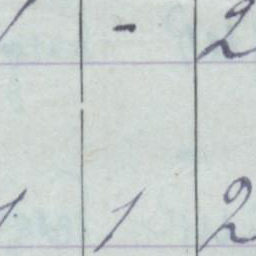 1 - 2
1 1 2